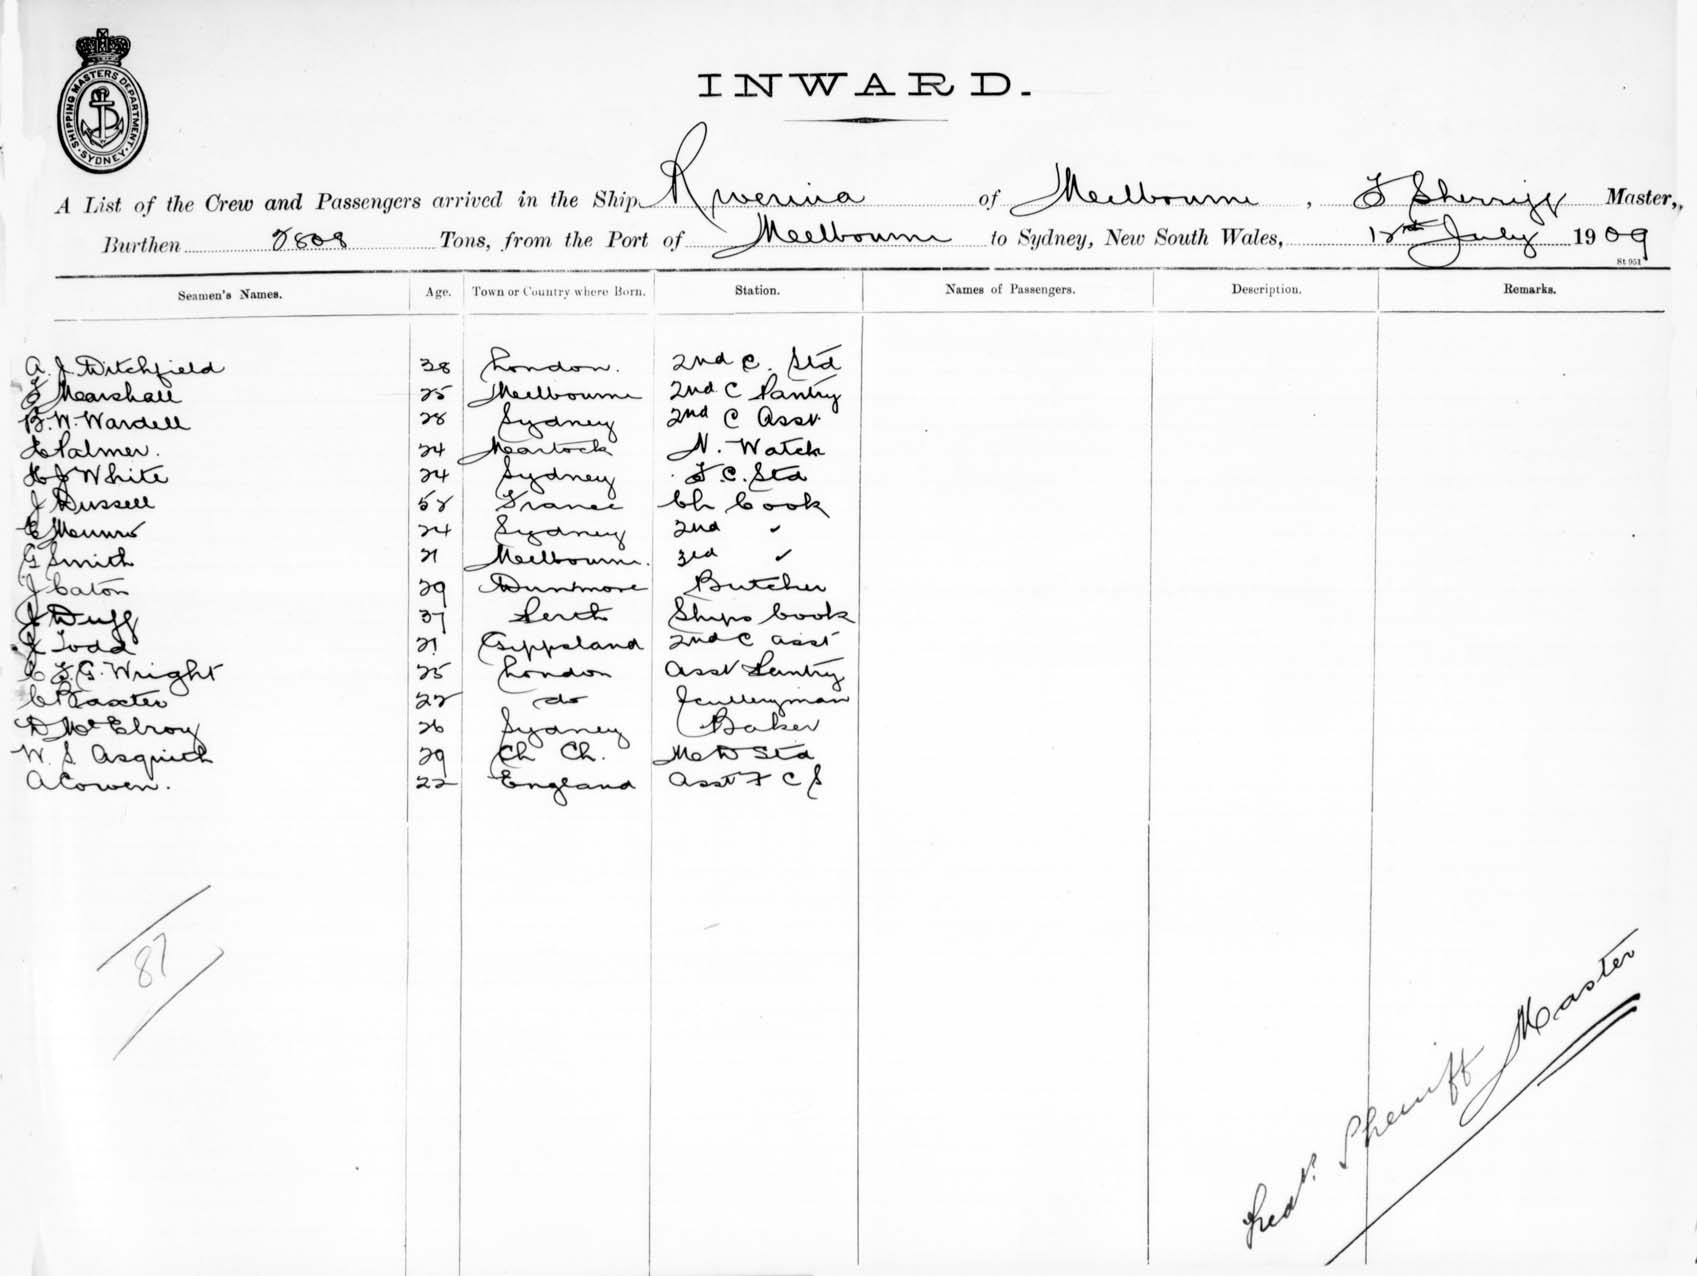 SHIPPING MASTERS DEPARTMENT · SYDNEY ·
INWARD.
A List of the Crew and Passengers arrived in the Ship Riverina of Melbourne , F Sherriff Master,
Burthen 2808 Tons, from the Port of Melbourne to Sydney, New South Wales, 12th July 1909
St 951
Seamen's Names. Age. Town or Country where Born. Station. Names of Passengers. Description. Remarks.
A. J. Ditchfield 38 London. 2nd C. Std
F Marshall 25 Melbourne 2nd C Pantry
B. W. Wardell 28 Sydney 2nd C Asst
Palmer. 24 Martock N. Watch
H J White 24 Sydney F. C. Std
J Dussell 52 France Ch Cook
E Munro 24 Sydney 2nd "
G Smith 21 Melbourne. 3rd "
J Caton 29 Dunmore Butcher
J Duff 37 Perth Ships Cook
J Todd 21 Gippsland 2nd C asst
C F. G. Wright 25 London Asst Pantry
C Baxter 22 do Sculleryman
D McElroy 26 Sydney Baker
W. S Asquith 29 Ch Ch. M D Std
A Cowen. 22 England Asst F C S
87
Fredk. Sherriff Master